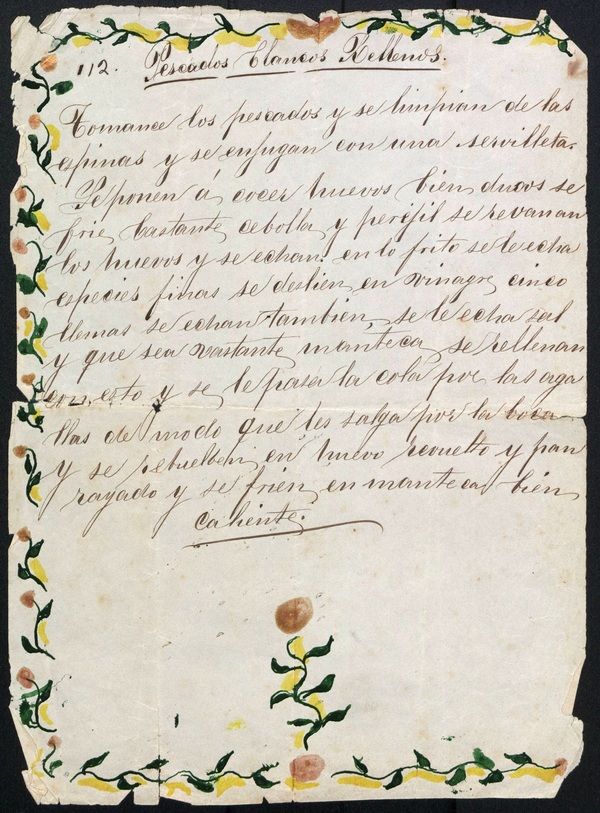 112. Pescados blancos Rellenos.
Tomance los pescados y se limpian de las
espinas y se enjugan con una servilleta.
Se ponen á cocer huevos bien duros se
frie bastante cebolla y perejil se revanan
los huevos y se echan en lo frito se le echa
especies finas se deslien en vinagre cinco
llemas se echan tambien, se le echa sal
y que sea vastante manteca, se rellenan
con esto y se le pasa la cola por las aga
llas de modo que les salga por la boca
y se rebuelben en huevo revuelto y pan
rayado y se frien en manteca bien
caliente.